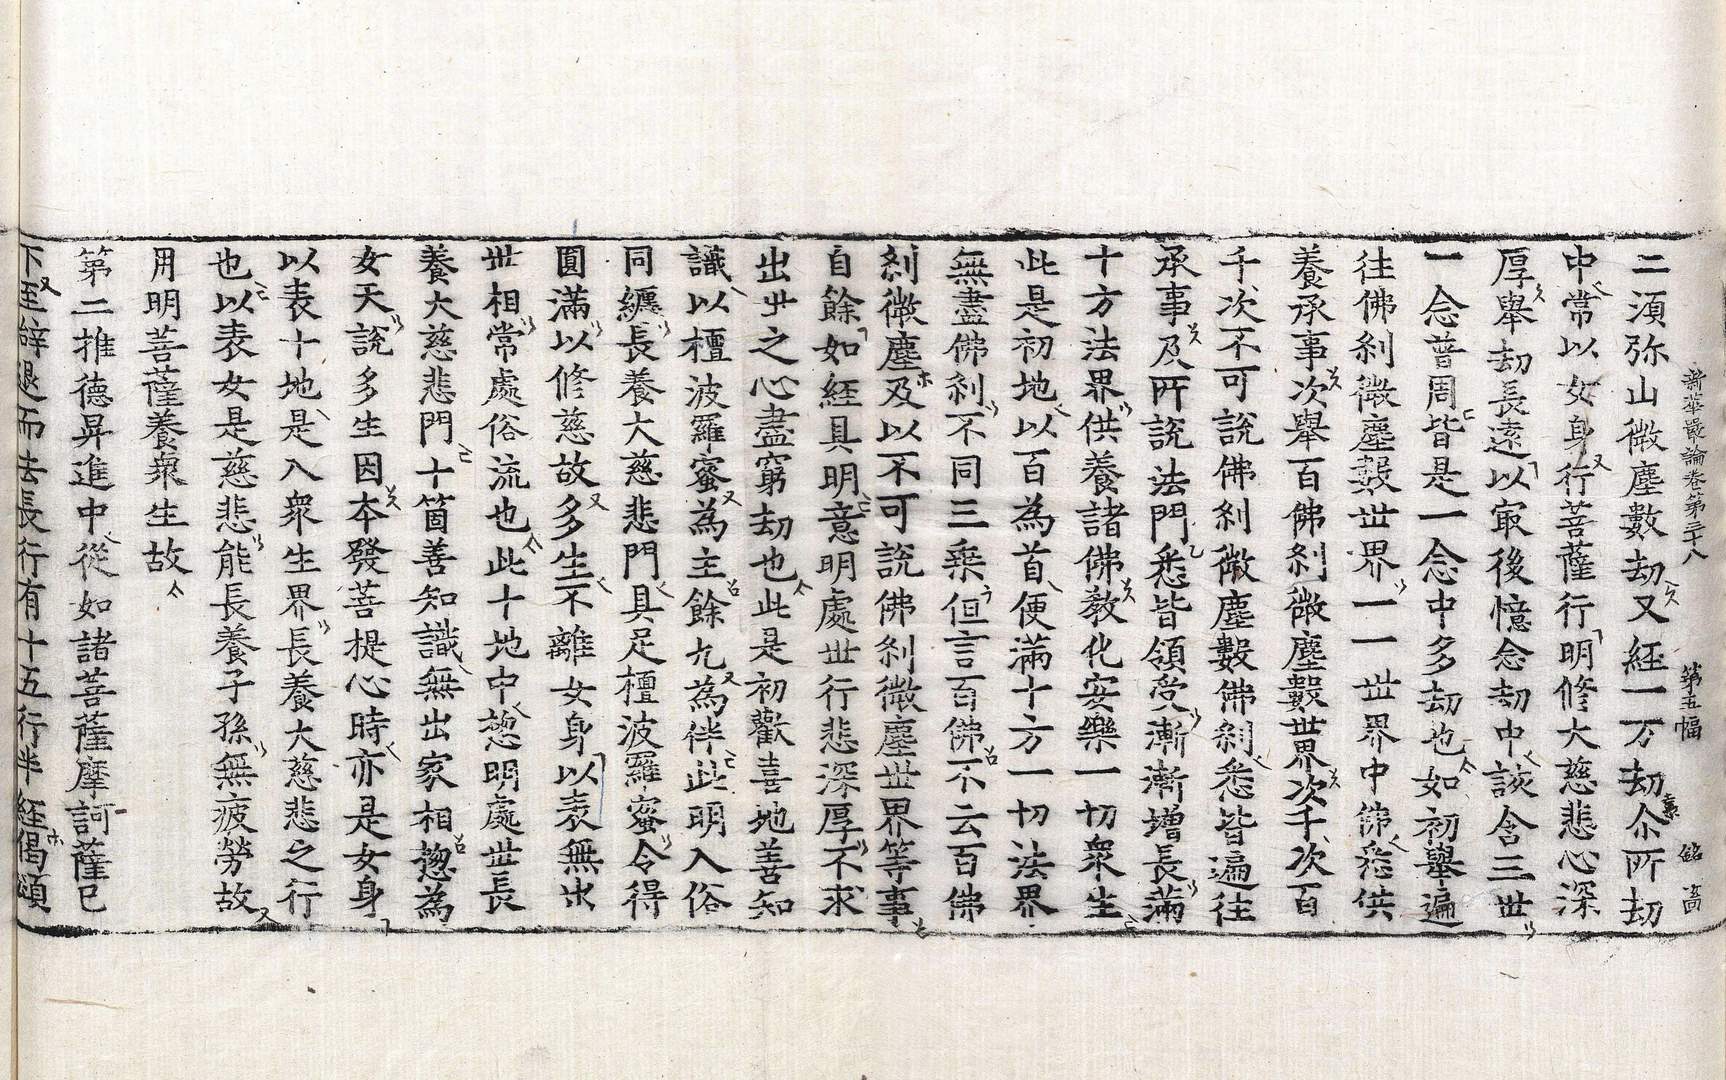 新華嚴論卷第三十八 第五幅 銘 㐭
二須弥山微塵數劫又經一万劫尒所劫
中常以女身行菩薩行明修大慈悲心深
厚舉劫長遠以㝡後憶念劫中該含三世
一念普周皆是一念中多劫也如初舉遍
往佛刹微塵數世界一一世界中佛悉供
養承事次舉百佛刹微塵數世界次千次百
千次不可說佛刹微塵數佛刹悉皆遍往
承事及所說法門悉皆領受漸漸增長滿
十方法界供養諸佛教化安樂一切衆生
此是初地以百為首便滿十方一切法界
無盡佛刹不同三乘但言百佛不云百佛
刹微塵及以不可說佛刹微塵世界等事
自餘如經具明意明處世行悲深厚不求
出世之心盡窮劫也此是初歡喜地善知
識以檀波羅蜜為主餘九為伴此明入俗
同纏長養大慈悲門具足檀波羅蜜令得
圓滿以修慈故多生不離女身以表無出
世相常處俗流也此十地中揔明處世長
養大慈悲門十箇善知識無出家相揔為
女天說多生因本發菩提心時亦是女身
以表十地是入衆生界長養大慈悲之行
也以表女是慈悲能長養子孫無疲勞故
用明菩薩養衆生故
第二推德昇進中從如諸菩薩摩訶薩已
下至辭退而去長行有十五行半經偈頌